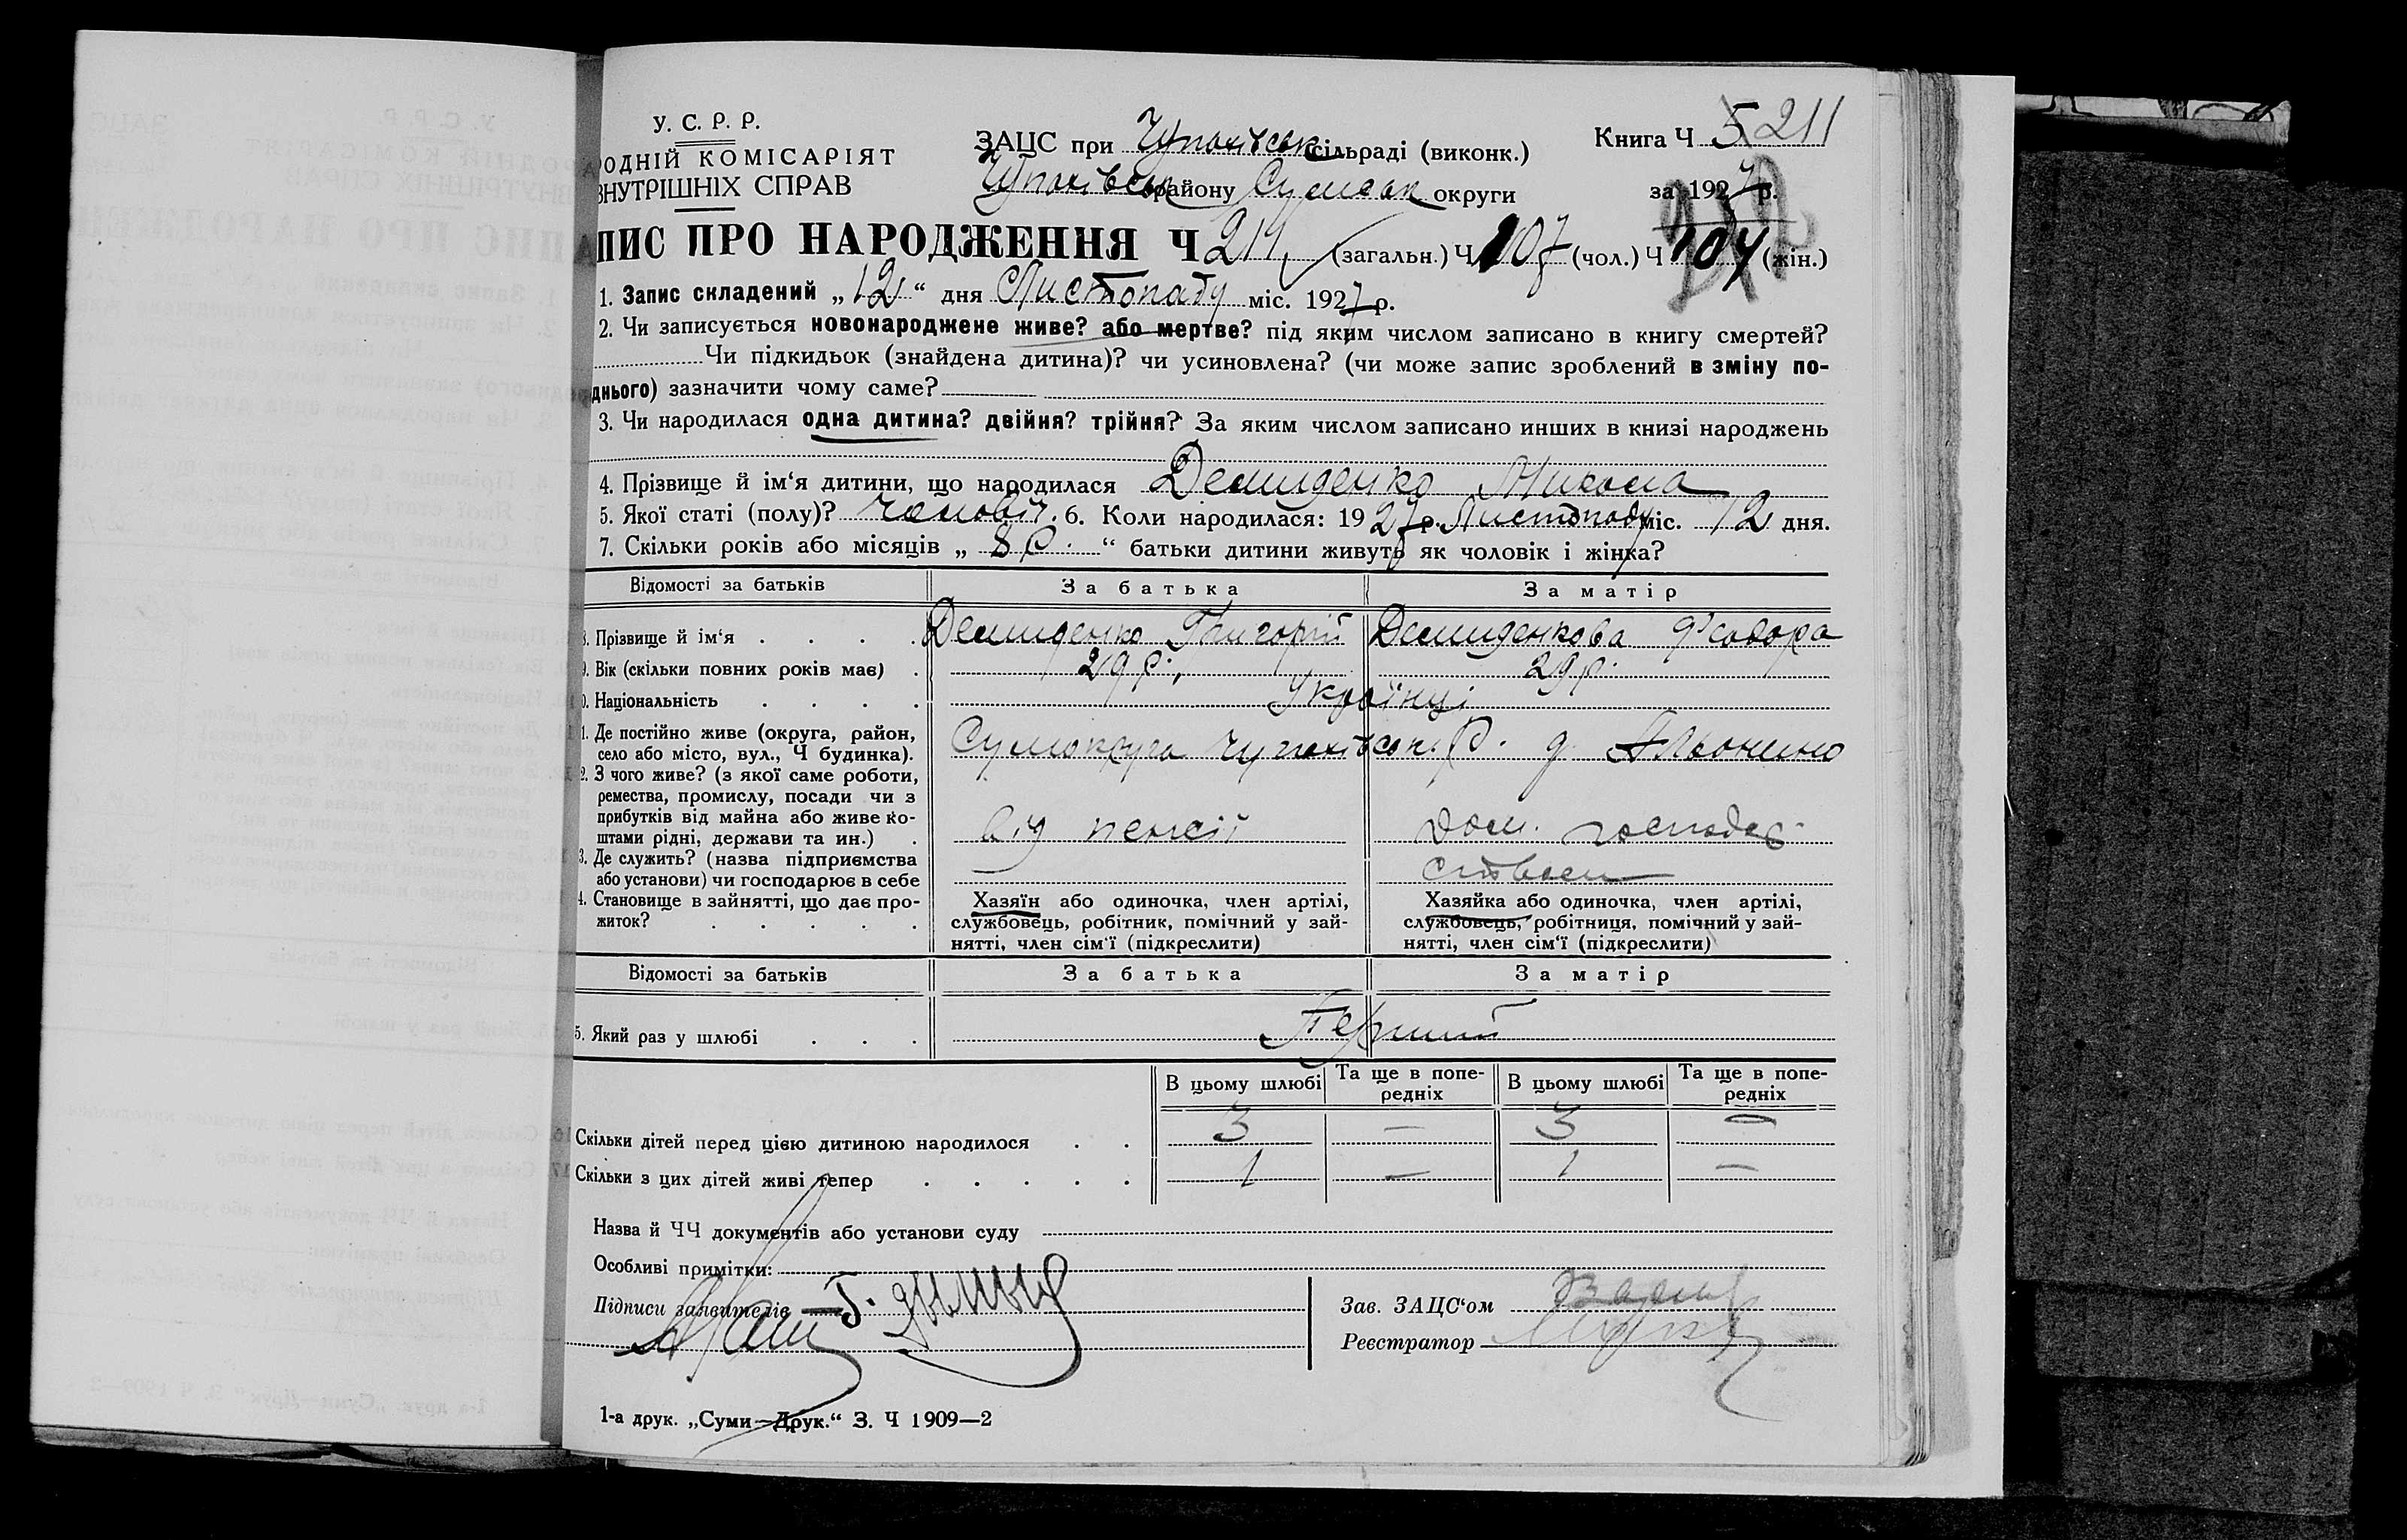 У. С. Р. Р.
ОДНІЙ КОМІСАРІЯТ
ВНУТРІШНІХ СПРАВ
ЗАЦС при Чупахівськ сільраді (виконк.)
Чупахівськ району Сумськ округи
Книга Ч 5 211
за 1927 р.
ПИС ПРО НАРОДЖЕННЯ Ч 211 (загальн.) Ч 107 (чол.) Ч 104 (жін.)
1. Запис складений „12“ дня Листопаду міс. 1927 р.
2. Чи записується новонароджене живе? або мертве? під яким числом записано в книгу смертей?
Чи підкидьок (знайдена дитина)? чи усиновлена? (чи може запис зроблений в зміну по-
днього) зазначити чому саме?
3. Чи народилася одна дитина? двійня? трійня? За яким числом записано инших в книзі народжень
4. Прізвище й ім‘я дитини, що народилася Демиденко Микола
5. Якої статі (полу)? чоловіч. 6. Коли народилася: 1927 р. Листопаду міс. 12 дня.
7. Скільки років або місяців „ 8 р. “ батьки дитини живуть як чоловік і жінка?
Відомості за батьків За батька За матір
8. Прізвище й ім‘я Демиденко Григорій Демиденкова Ф'едора
9. Вік (скільки повних років має) 29 р. 29 р.
0. Національність Українці
1. Де постійно живе (округа, район,
село або місто, вул., Ч будинка). Сумокруга Чупахівськ. Р. д. Альонино
2. З чого живе? (з якої саме роботи,
ремества, промислу, посади чи з
прибутків від майна або живе ко-
штами рідні, держави та ин.) від пенсії Дом. господар-
3. Де служить? (назва підприємства
або установи) чи господарює в себе ством
4. Становище в зайнятті, що дає про-
житок?
Хазяїн або одиночка, член артілі,
службовець, робітник, помічний у зай-
нятті, член сім‘ї (підкреслити)
Хазяйка або одиночка, член артілі,
службовець, робітниця, помічний у зай-
нятті, член сім‘ї (підкреслити)
Відомості за батьків За батька За матір
5. Який раз у шлюбі Перший
В цьому шлюбі Та ще в попе-
редніх В цьому шлюбі Та ще в попе-
редніх
Скільки дітей перед цією дитиною народилося 3 — 3 —
Скільки з цих дітей живі тепер 1 — 1 —
Назва й ЧЧ документів або установи суду
Особливі примітки:
Підписи заявителів Г.
Зав. ЗАЦС‘ом
Реєстратор
1-а друк. „Суми—Друк.“ З. Ч 1909—2